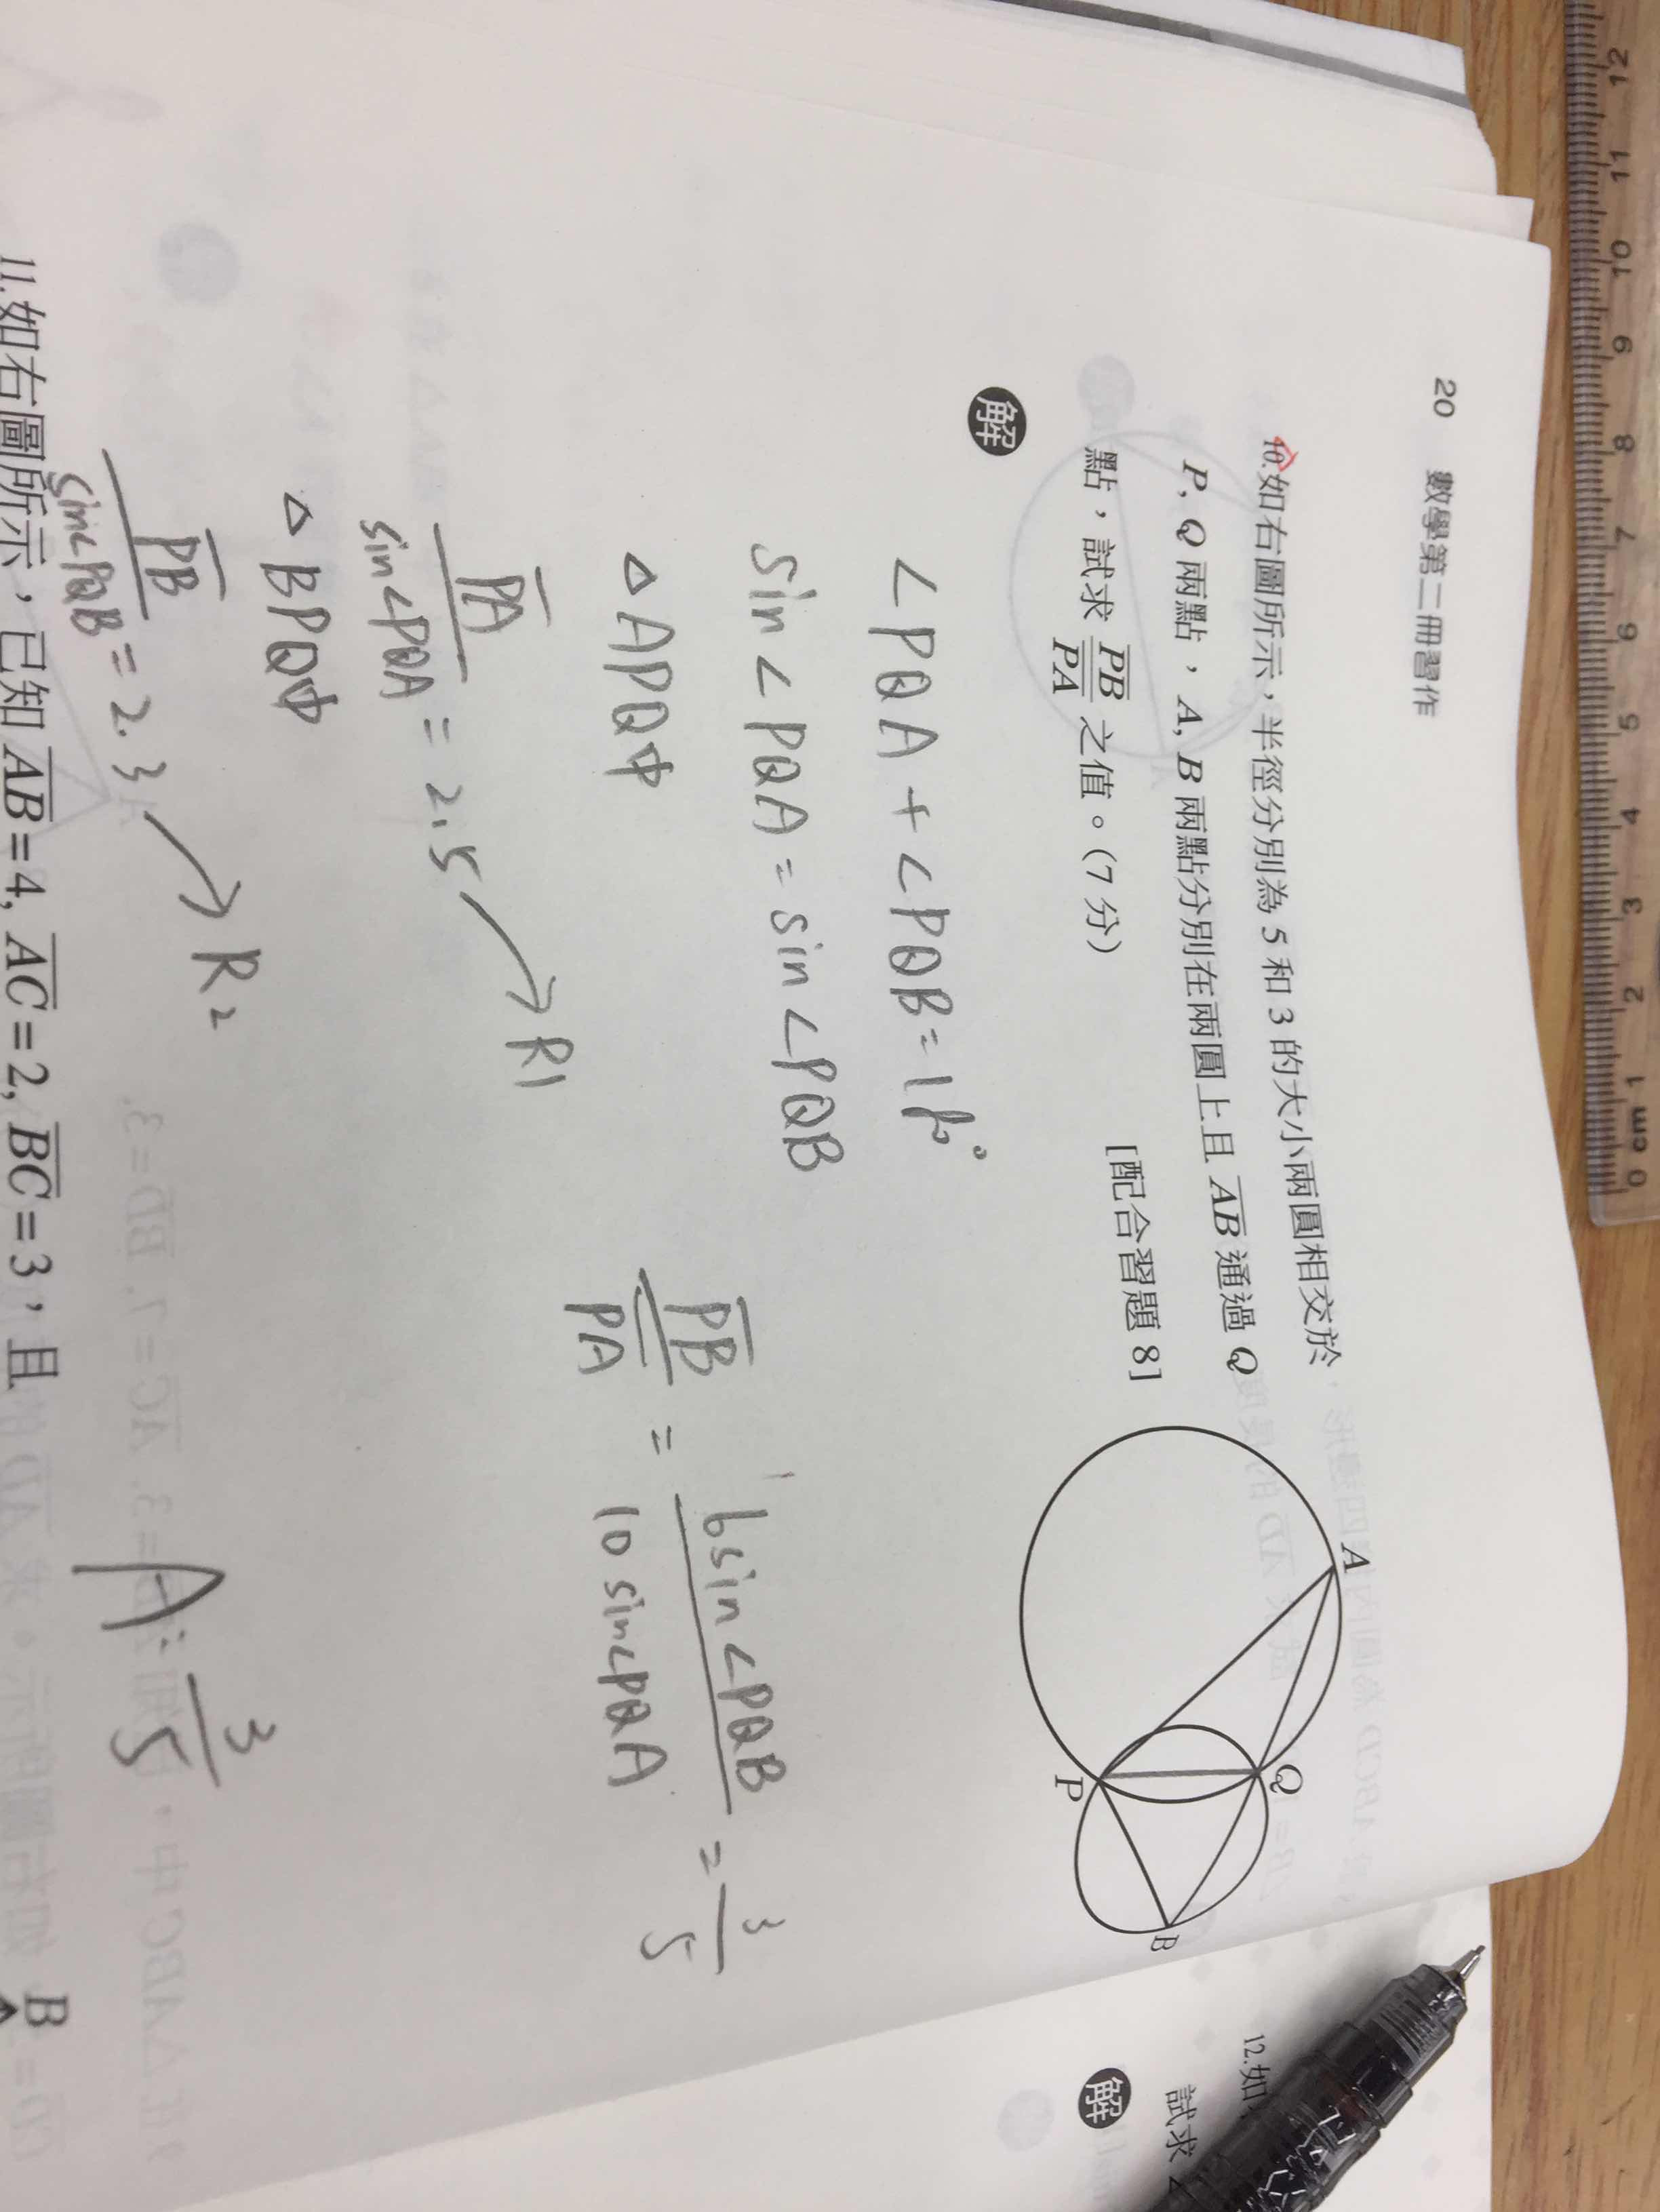 20 數學第二冊習作
10.如右圖所示，半徑分別為 5 和 3 的大小兩圓相交於
P, Q 兩點，A, B 兩點分別在兩圓上且 AB 通過 Q
點，試求 PB/PA 之值。(7 分) [配合習題 8]
A
Q
P
B
解
∠PQA + ∠PQB = 180°
sin∠PQA = sin∠PQB
△APQ中
PA/sin∠PQA = 2.5 → R1
△BPQ中
PB/sin∠PQB = 2.3 → R2
PB/PA = 6sin∠PQB/10sin∠PQA = 3/5
A: 3/5
11.如右圖所示，已知 AB=4, AC=2, BC=3，且
B
12.如
試求
解
0 cm 1 2 3 4 5 6 7 8 9 10 11 12